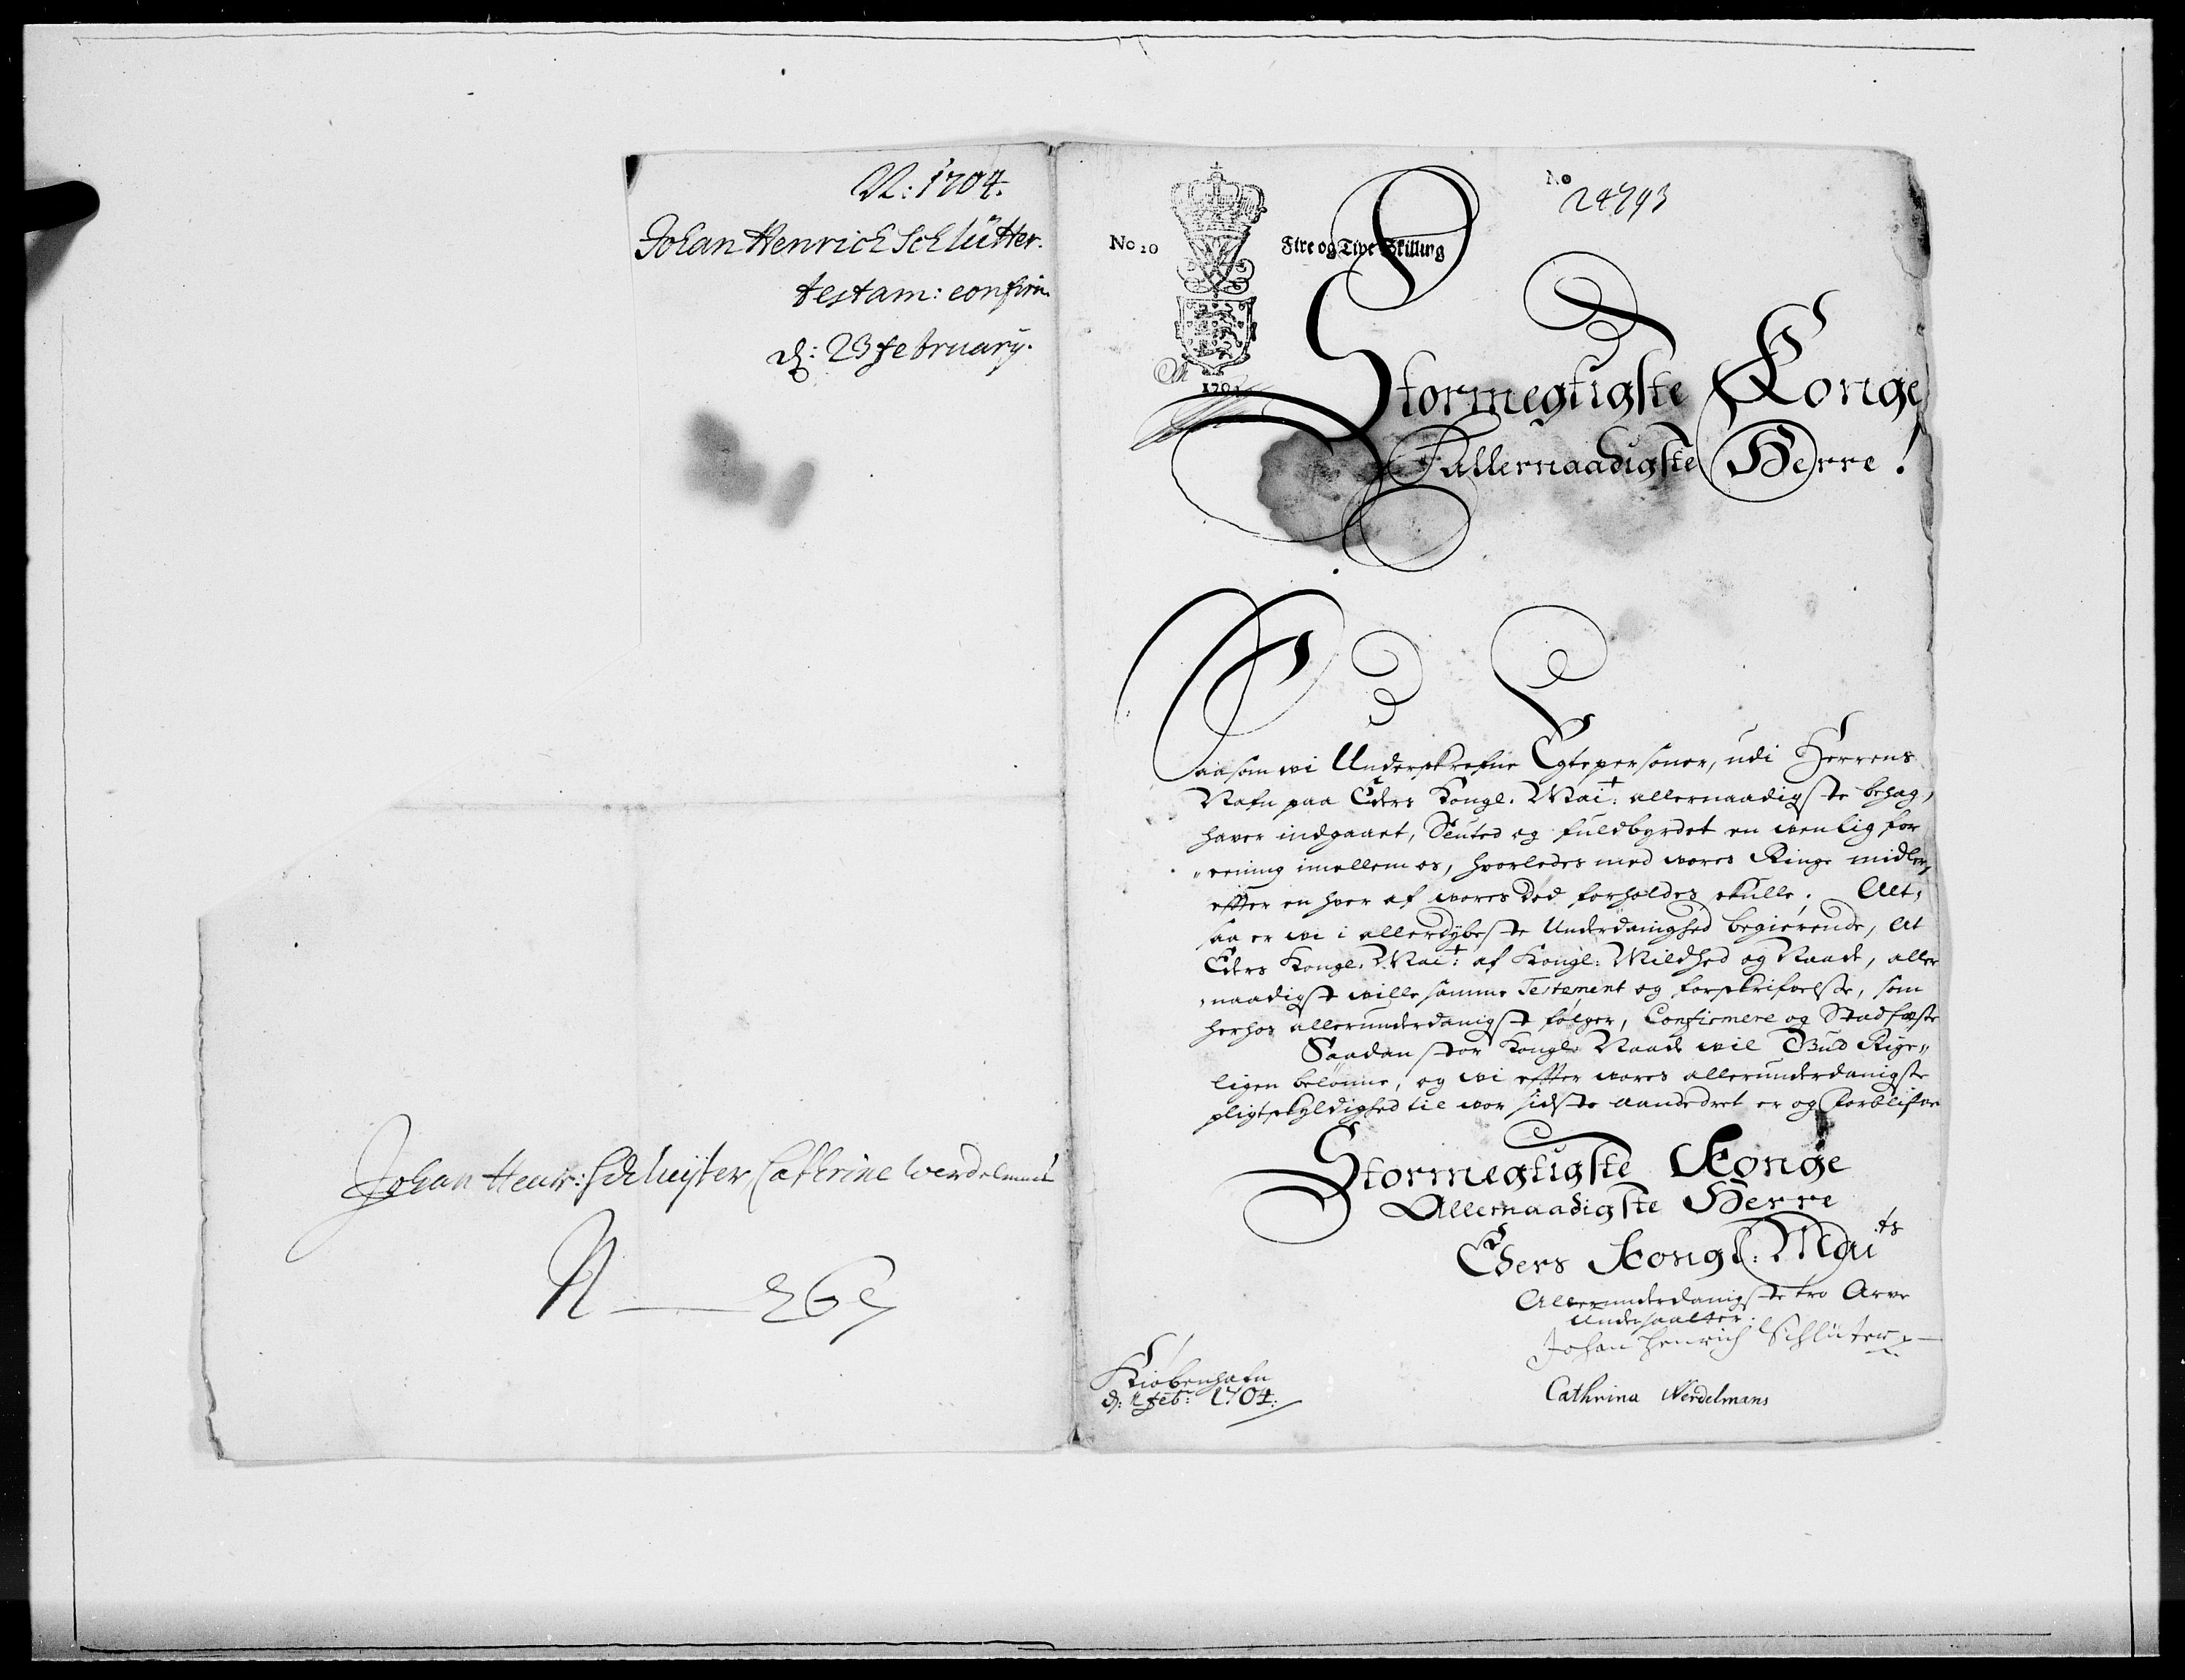 N: 1704.
Johan Henrich Schlütter.
testam: confirm.
d: 23 february.
Johan Henr: Schluyter, Cathrine Werdelmans
N ——— 267
No 10
Fire og Tive Skilling
No
24793
1704
Stormegtigste Konge
Allernaadigste Herre!
Saasom wi Underskrefne Egtepersoner, udi Herrens
Nafn paa Eders Kongl. Mait: allernaadigste behag,
hafver indgaaet, Sluted og fuldbyrdet en wenlig for
„eening imellem os, hvorledes med wores Ringe midler,
effter en hver af wores Død forholdes skulle; Alt,
saa er wi i allerdybeste Underdanighed begierende, at
Eders Kongl. Mait: af Kongl: Mildhed og Naade, aller
„naadigst wille samme Testement og forskrifvelse, som
herhos allerunderdanigst følger, Confirmere og Stadfæste
Saadan stor Kongl: Naade wil Gud Rige„
ligen belønne, og wi effter wores allerunderdanigste
pligtskyldighed til wor sidste aandedret er og forblifver
Stormegtigste Konge
Allernaadigste Herre
Eders Kongl: Maits
Allerunderdanigste tro Arve
Undersaatter.
Johan Henrich Schlüter
Cathrina Werdelmans
Kiøbenhafn
d: feb: 1704: